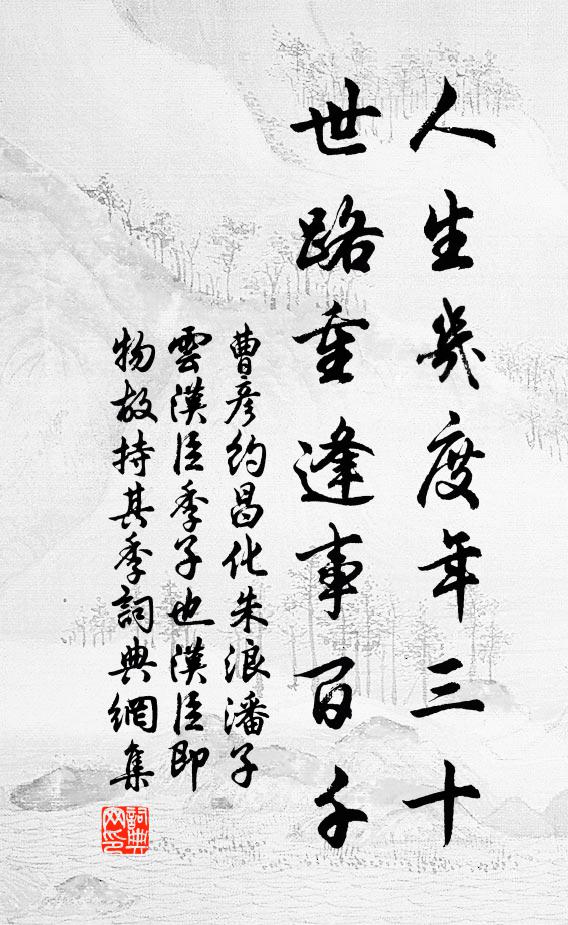 人生幾度年三十
世路重逢事百千
曹彦約昌化朱浪潘子
雲漢臣季子也漢臣即
物故持其季詞典網集
詞典網印